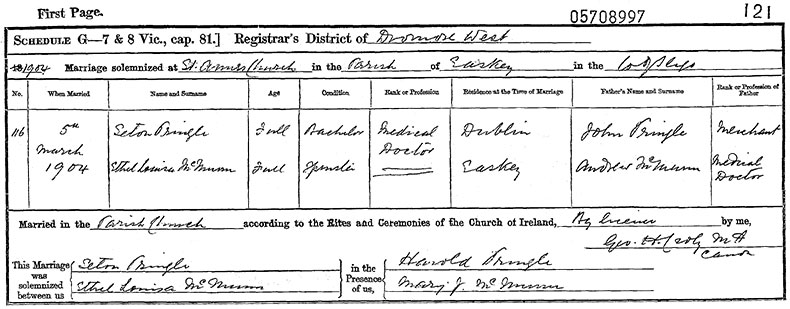 First Page. 05708997 121
SCHEDULE G—7 & 8 Vic., cap. 81.] Registrar's District of Dromore West
1904 Marriage solemnized at St. Annes Church in the Parish of Easkey in the Co of Sligo
No. When Married Name and Surname Age Condition Rank or Profession Residence at the Time of Marriage Father's Name and Surname Rank or Profession of Father
116 5th Seton Pringle Full Bachelor Medical Dublin John Pringle Merchant
March Doctor
1904 Ethel Louisa McMunn Full Spinster Easkey Andrew McMunn Medical
Doctor
Married in the Parish Church according to the Rites and Ceremonies of the Church of Ireland, By License by me,
Geo. H. Croly
Canon
This Marriage was solemnized between us Seton Pringle in the Presence of us, Harold Pringle
Ethel Louisa McMunn Mary J. McMunn